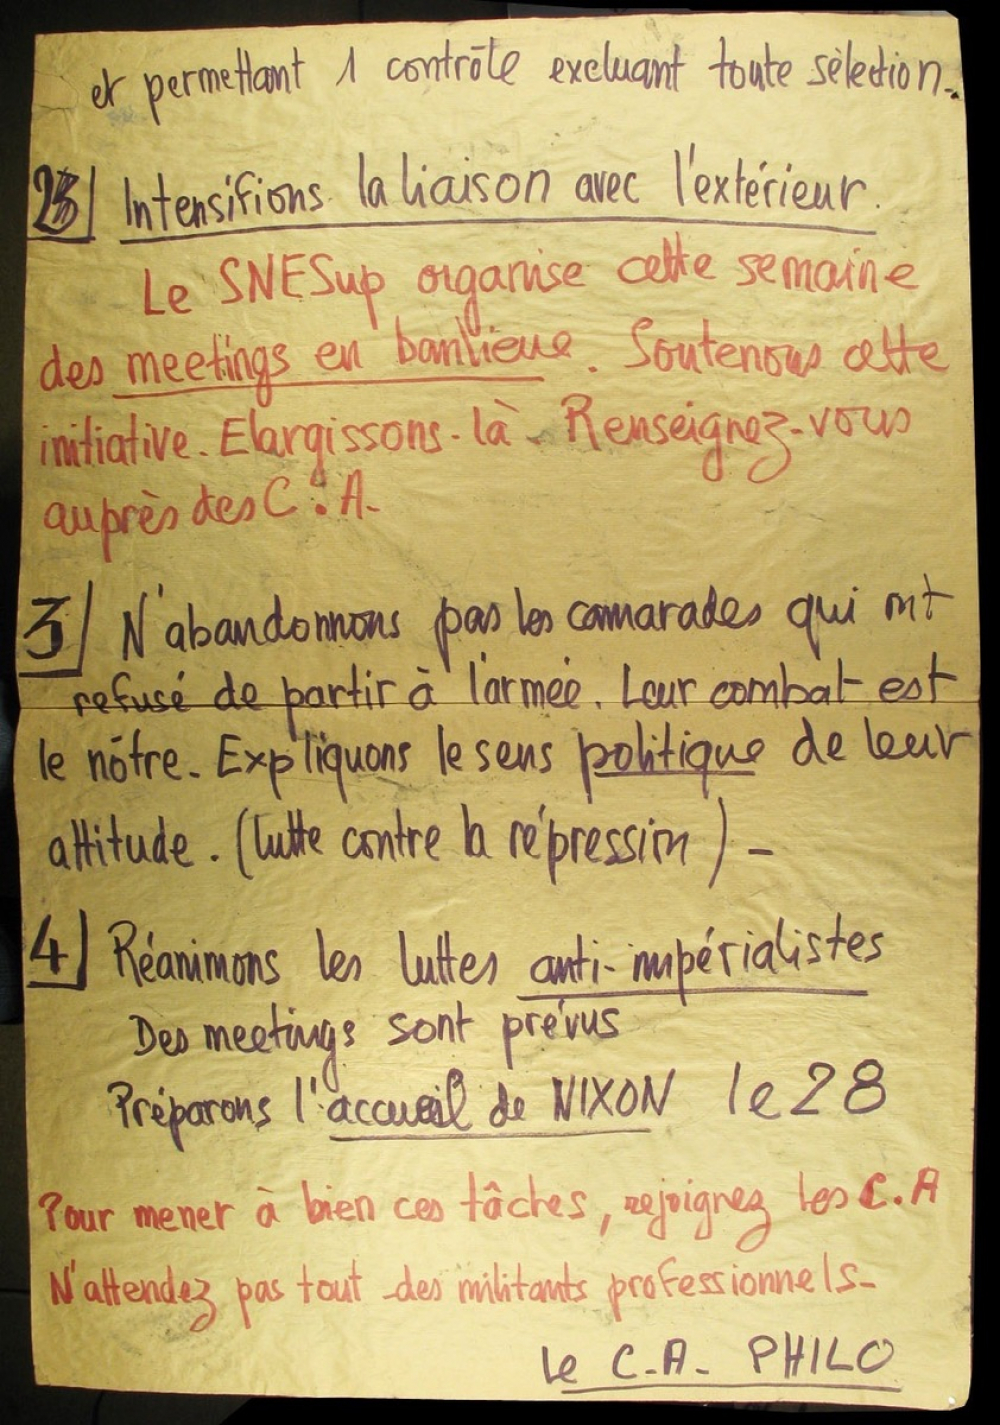 et permettant 1 contrôle excluant toute sélection.
2/ Intensifions la liaison avec l'extérieur.
Le SNESup organise cette semaine
des meetings en banlieue. Soutenons cette
initiative. Elargissons-là. Renseignez-vous
auprès des C.A.
3/ N'abandonnons pas les camarades qui ont
refusé de partir à l'armée. Leur combat est
le nôtre. Expliquons le sens politique de leur
attitude. (lutte contre la répression) -
4/ Réanimons les luttes anti-impérialistes
Des meetings sont prévus
Préparons l'accueil de NIXON le 28
Pour mener à bien ces tâches, rejoignez les C.A
N'attendez pas tout des militants professionnels-
Le C.A. PHILO